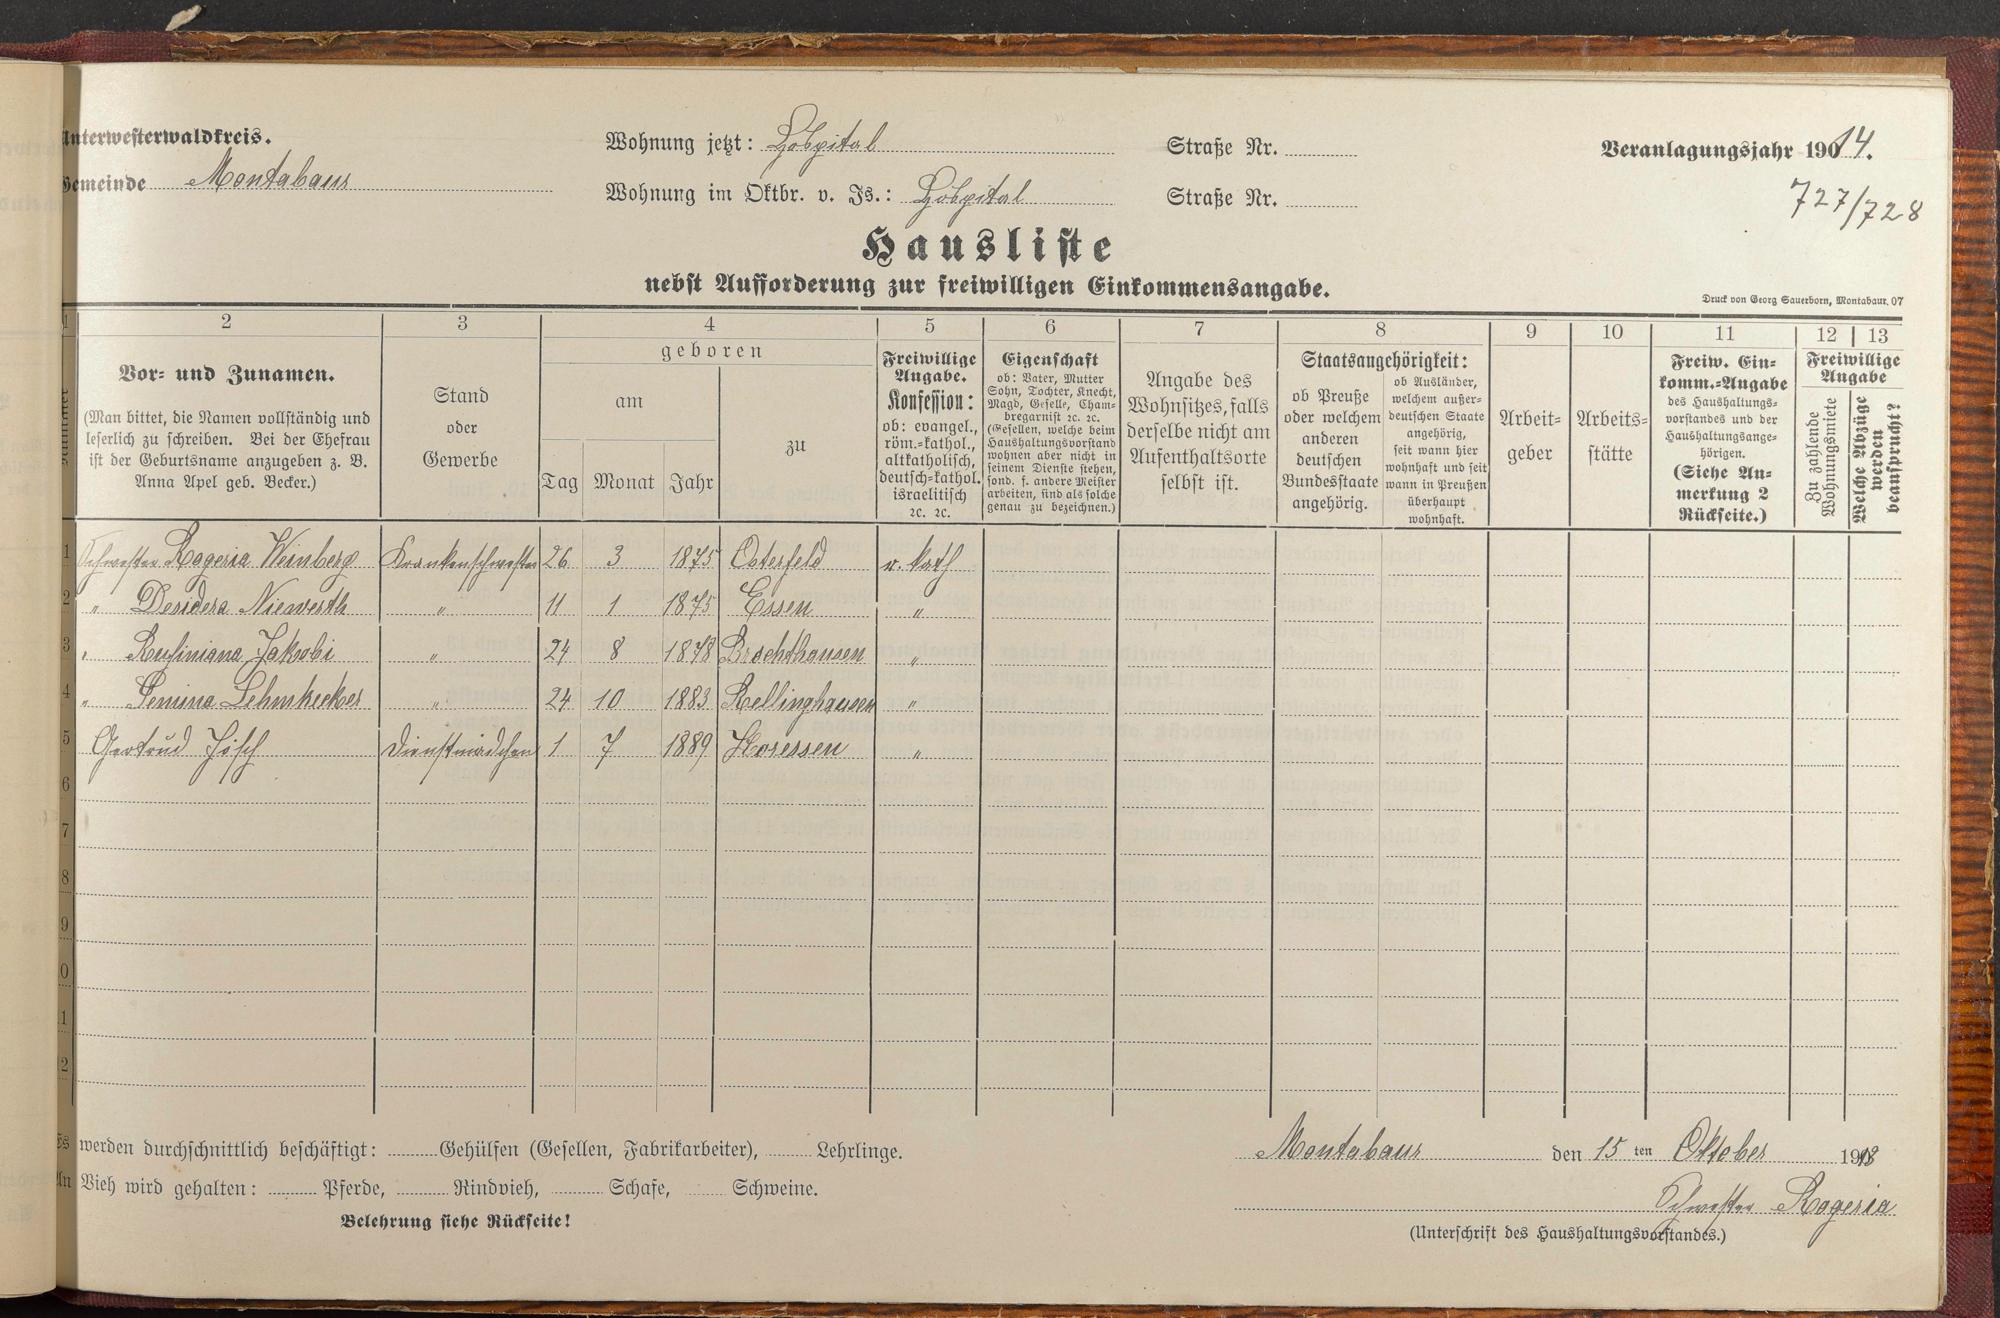 Unterwesterwaldkreis.
Gemeinde Montabaur
Wohnung jetzt: Hospital Straße Nr.
Wohnung im Oktbr. v. Js.: Hospital Straße Nr.
Veranlagungsjahr 19014.
727/728
Hausliste
nebst Aufforderung zur freiwilligen Einkommensangabe.
Druck von Georg Sauerborn, Montabaur. 07
1 2 3 4 5 6 7 8 9 10 11 12 13
Nummer
Vor- und Zunamen.
(Man bittet, die Namen vollständig und
leserlich zu schreiben. Bei der Ehefrau
ist der Geburtsname anzugeben z. B.
Anna Apel geb. Becker.)
Stand
oder
Gewerbe
geboren
am
Tag Monat Jahr
zu
Freiwillige
Angabe.
Konfession:
ob: evangel.,
röm.-kathol.,
altkatholisch,
deutsch-kathol.
israelitisch
ec. ec.
Eigenschaft
ob: Vater, Mutter
Sohn, Tochter, Knecht,
Magd, Geselle, Cham-
bregarnist ec. ec.
(Gesellen, welche beim
Haushaltungsvorstand
wohnen aber nicht in
seinem Dienste stehen,
sond. f. andere Meister
arbeiten, sind als solche
genau zu bezeichnen.)
Angabe des
Wohnsitzes, falls
derselbe nicht am
Aufenthaltsorte
selbst ist.
Staatsangehörigkeit:
ob Preuße
oder welchem
anderen
deutschen
Bundesstaate
angehörig.
ob Ausländer,
welchem außer-
deutschen Staate
angehörig,
seit wann hier
wohnhaft und seit
wann in Preußen
überhaupt
wohnhaft.
Arbeit-
geber
Arbeits-
stätte
Freiw. Ein-
komm.-Angabe
des Haushaltungs-
vorstandes und der
Haushaltungsange-
hörigen.
(Siehe An-
merkung 2
Rückseite.)
Freiwillige
Angabe
Zu zahlende
Wohnungsmiete
Welche Abzüge
werden
beansprucht?
1 Schwester Rogeria Weinberg Krankenschwester 26 3 1875 Osterfeld r. kath
2 " Desidera Niewerth " 11 1 1875 Essen "
3 " Rufiniana Jakobi " 24 8 1878 Brachthausen "
4 " Lehmhecker " 24 10 1883 Rellinghausen "
5 Gertrud Jösch Dienstmädchen 1 7 1889 Horessen "
6
7
8
9
10
11
12
Es werden durchschnittlich beschäftigt: Gehülfen (Gesellen, Fabrikarbeiter), Lehrlinge.
An Vieh wird gehalten: Pferde, Rindvieh, Schafe, Schweine.
Belehrung siehe Rückseite!
Montabaur den 15 ten Oktober 1913
Schwester Rogeria
(Unterschrift des Haushaltungsvorstandes.)